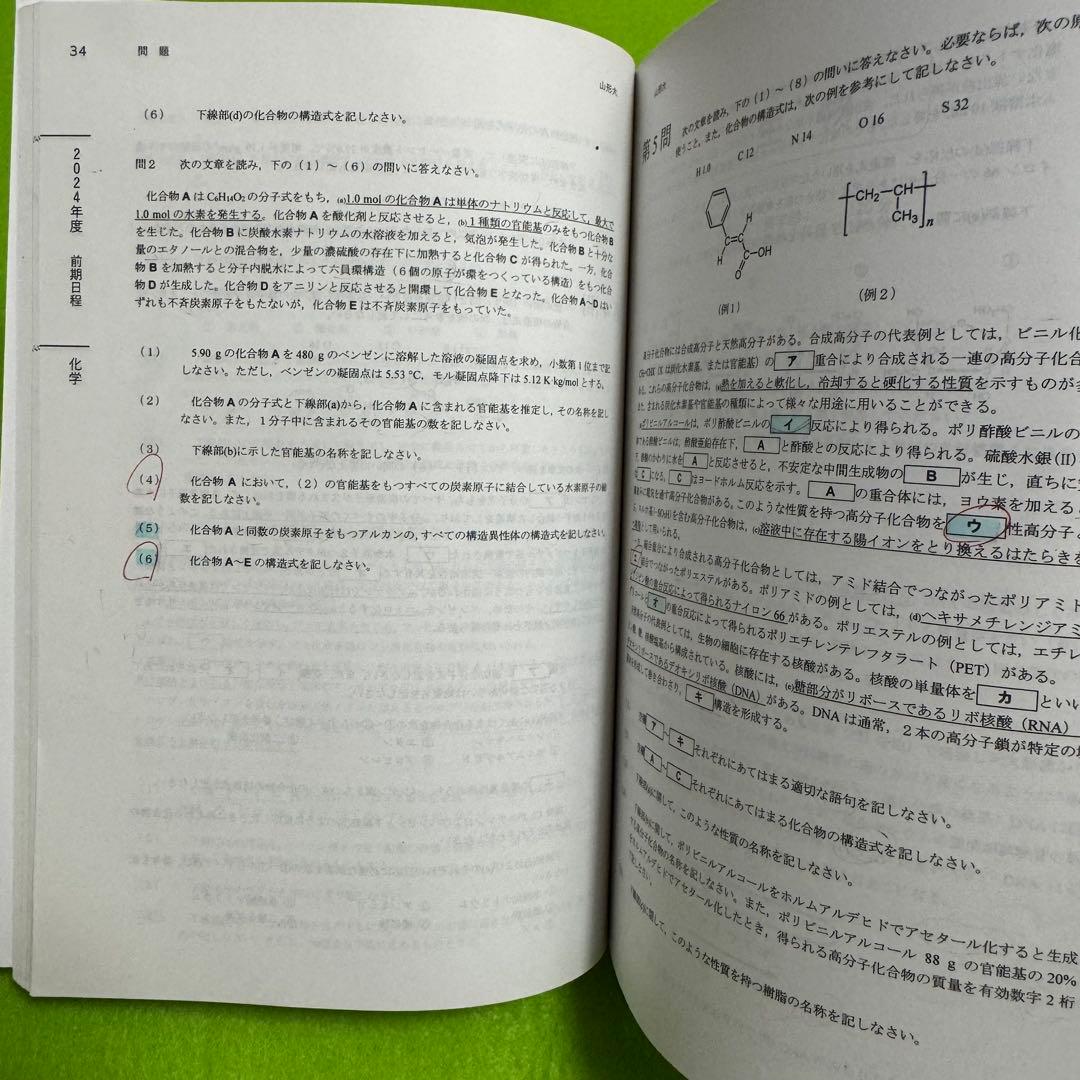 34
問 題
山形大
(6) 下線部(d)の化合物の構造式を記しなさい。
2024年度 前期日程
化学
問2 次の文章を読み，下の（1）～（6）の問いに答えなさい。
化合物AはC6H14O2の分子式をもち，(a)1.0 molの化合物Aは単体のナトリウムと反応して，最大で
1.0 molの水素を発生する。化合物Aを酸化剤と反応させると，(b)1種類の官能基のみをもつ化合物B
を生じた。化合物Bに炭酸水素ナトリウムの水溶液を加えると，気泡が発生した。化合物Bと十分な
量のエタノールとの混合物を，少量の濃硫酸の存在下に加熱すると化合物Cが得られた。一方，化合
物Bを加熱すると分子内脱水によって六員環構造（6個の原子が環をつくっている構造）をもつ化合
物Dが生成した。化合物Dをアニリンと反応させると開環して化合物Eとなった。化合物A~Dはい
ずれも不斉炭素原子をもたないが，化合物Eは不斉炭素原子をもっていた。
(1) 5.90 gの化合物Aを480 gのベンゼンに溶解した溶液の凝固点を求め，小数第1位まで記
しなさい。ただし，ベンゼンの凝固点は5.53 ℃，モル凝固点降下は5.12 K·kg/molとする。
(2) 化合物Aの分子式と下線部(a)から，化合物Aに含まれる官能基を推定し，その名称を記し
なさい。また，1分子中に含まれるその官能基の数を記しなさい。
(3) 下線部(b)に示した官能基の名称を記しなさい。
(4) 化合物Aにおいて，(2)の官能基をもつすべての炭素原子に結合している水素原子の総
数を記しなさい。
(5) 化合物Aと同数の炭素原子をもつアルカンの，すべての構造異性体の構造式を記しなさい。
(6) 化合物A~Eの構造式を記しなさい。
山形大
第5問 次の文章を読み，下の（1）～（8）の問いに答えなさい。必要ならば，次の原
使うこと。また，化合物の構造式は，次の例を参考にして記しなさい。
H 1.0 C 12 N 14 O 16 S 32
H H C=C C O OH
CH2 CH CH3 n
(例1)
(例2)
高分子化合物には合成高分子と天然高分子がある。合成高分子の代表例としては，ビニル化
ア 重合により合成される一連の高分子化合
これらの高分子化合物は，(a)熱を加えると軟化し，冷却すると硬化する性質を示すものが多
含まれる炭化水素基や官能基の種類によって様々な用途に用いることができる。
ポリビニルアルコールは，ポリ酢酸ビニルの イ 反応により得られる。ポリ酢酸ビニルの
酢酸亜鉛存在下， A と酢酸との反応により得られる。硫酸水銀(II)
A と反応させると，不安定な中間生成物の B が生じ，直ちに
C になる。 C はヨードホルム反応を示す。 A の重合体には，ヨウ素を加える
電気を通す高分子化合物がある。このような性質を持つ高分子化合物を ウ 性高分子と
を含む高分子化合物は，(c)溶液中に存在する陽イオンをとり換えるはたらきを
として用いられる。
縮合重合により合成される高分子化合物としては，アミド結合でつながったポリアミド
結合でつながったポリエステルがある。ポリアミドの例としては，(d)ヘキサメチレンジアミ
の重合反応によって得られるナイロン66がある。ポリエステルの例としては，エチレ
オ の重合反応によって得られるポリエチレンテレフタラート（PET）がある。
代表例としては，生物の細胞に存在する核酸がある。核酸の単量体を カ といい
糖，リン酸，塩基から構成されている。核酸には，(e)糖部分がリボースであるリボ核酸（RNA）
デオキシリボースであるデオキシリボ核酸（DNA）がある。DNAは通常，2本の高分子鎖が特定の
キ 構造を形成する。
空欄 ア ~ キ それぞれにあてはまる適切な語句を記しなさい。
空欄 A ~ C それぞれにあてはまる化合物の構造式を記しなさい。
下線部(a)に関して，このような性質の名称を記しなさい。
下線部(b)に関して，ポリビニルアルコールをホルムアルデヒドでアセタール化すると生成
する高分子化合物の名称を記しなさい。また，ポリビニルアルコール 88 gの官能基の20%
をホルムアルデヒドでアセタール化したとき，得られる高分子化合物の質量を有効数字2桁
で記しなさい。
下線部(c)に関して，このような性質を持つ樹脂の名称を記しなさい。